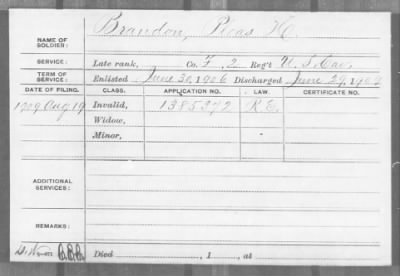 NAME OF SOLDIER: Brandon, Picas H.
SERVICE: Late rank, Co. F, 2 Reg't U.S. Cav.
TERM OF SERVICE: Enlisted June 30, 1906 Discharged June 29, 190
DATE OF FILING. CLASS. APPLICATION NO. LAW. CERTIFICATE NO.
1909 Aug. 19 Invalid, 1385372
Widow,
Minor,
ADDITIONAL SERVICES:
REMARKS:
Died , 1 , at